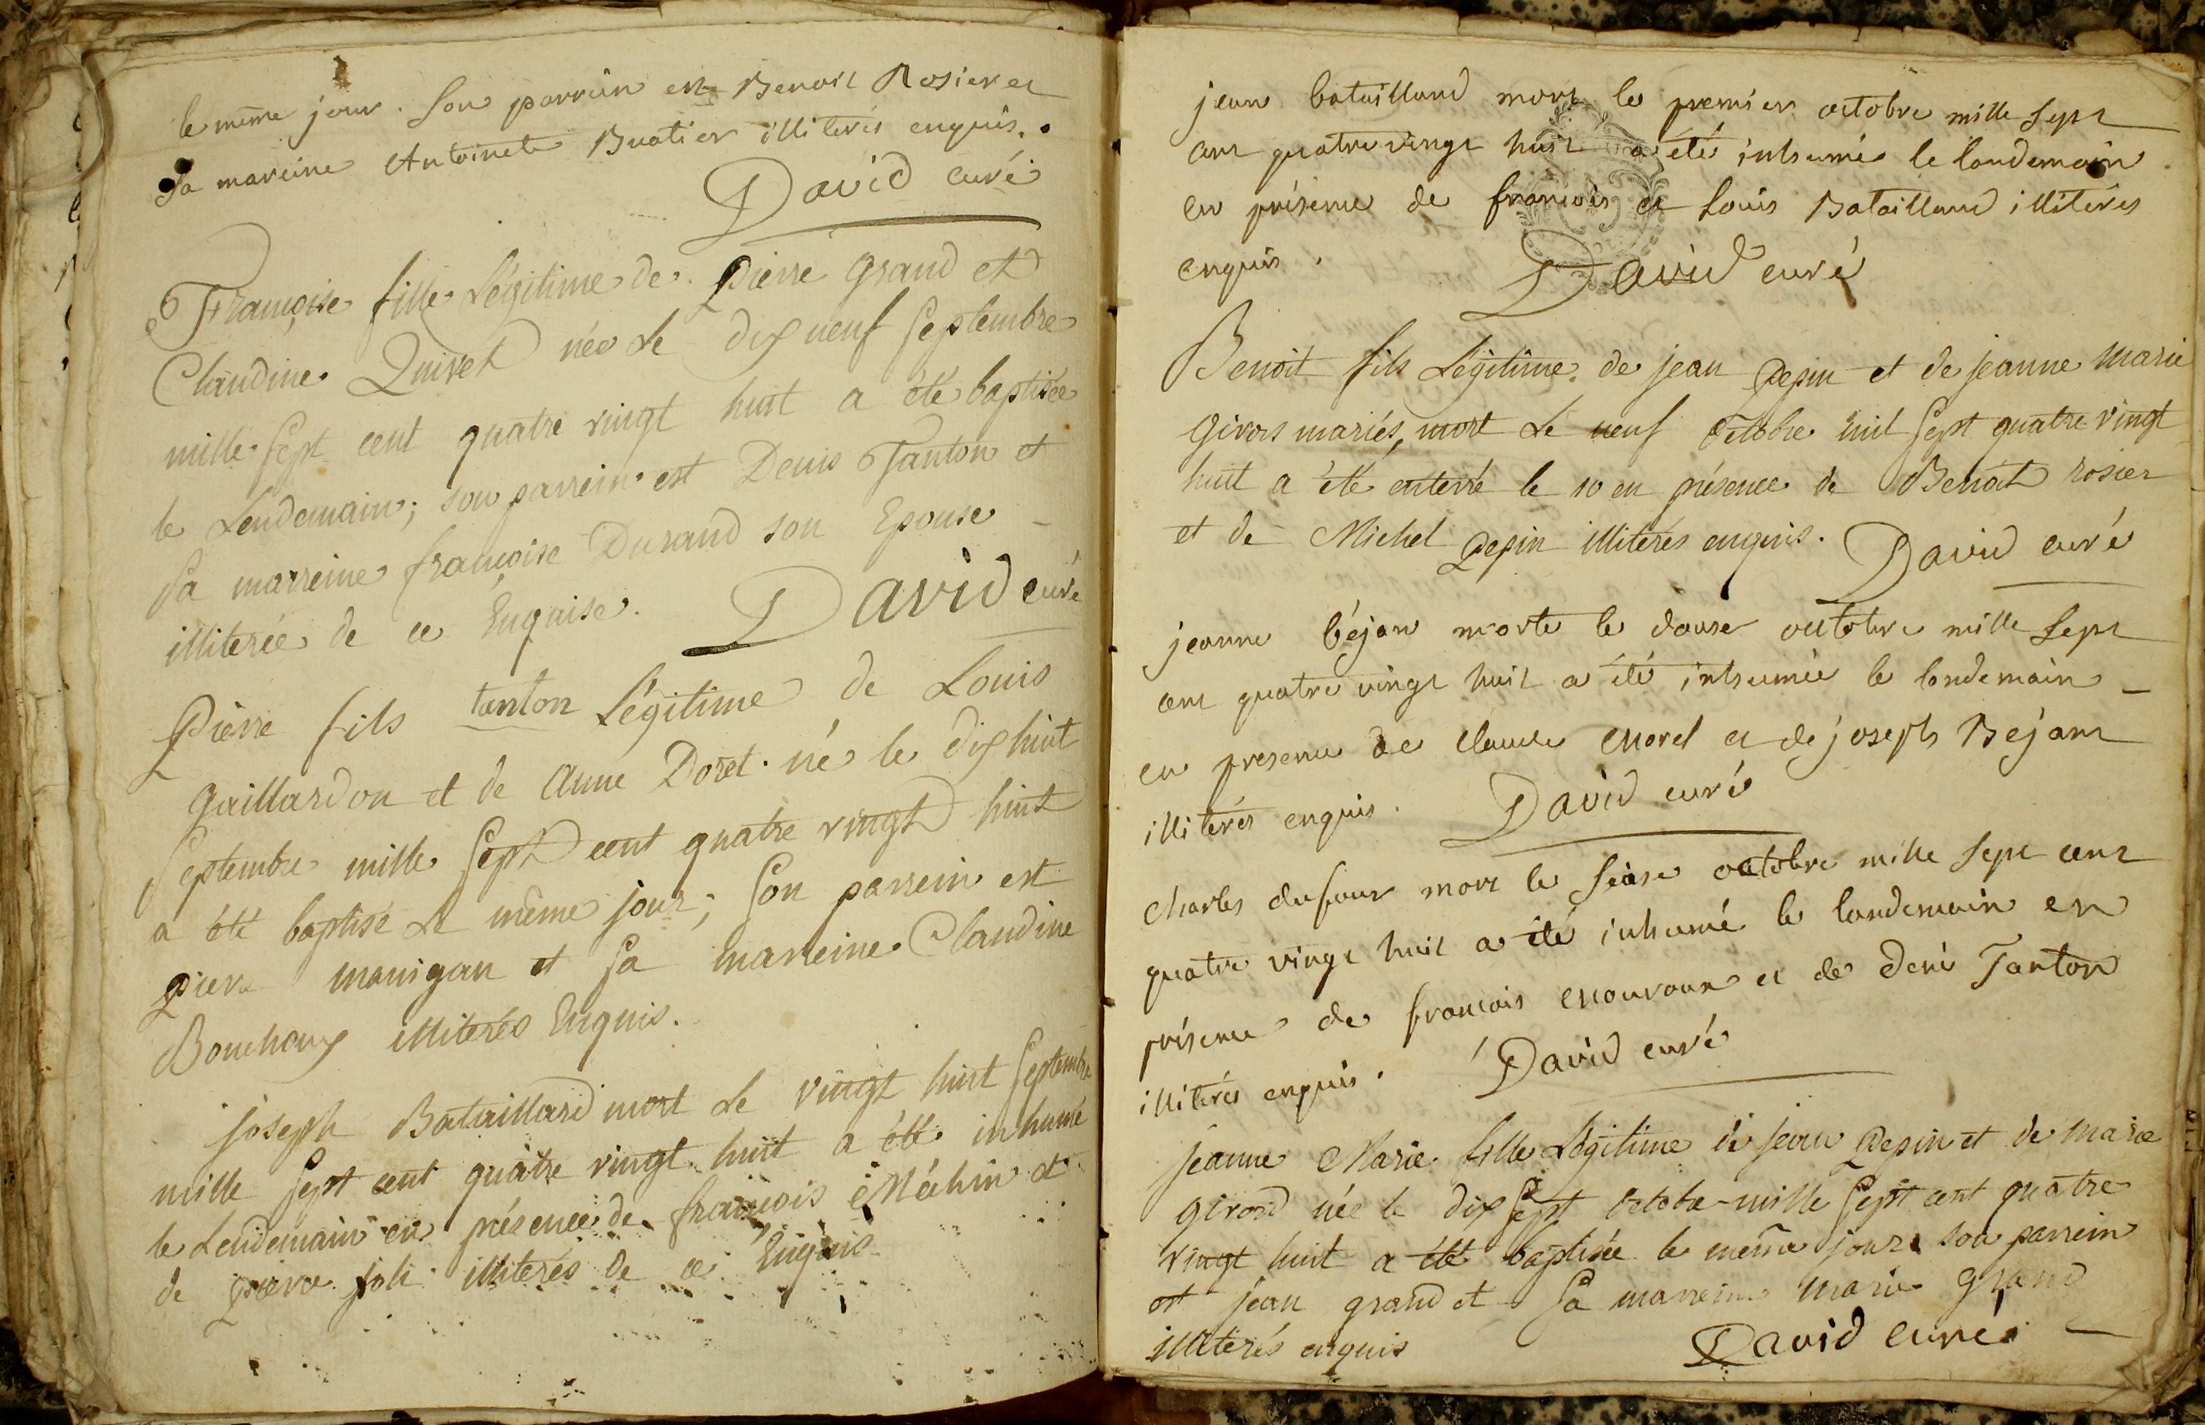 le même jour. Son parrein est Benoit Rosier et
sa mareine Antoinete Buatier illiterés enquis.
David curé
Françoise fille Légitime de Pierre Grand et
Claudine Quivet née Le dix neuf Septembre
mille Sept cent quatre vingt huit a été baptisée
le Lendemain; son parrein est Denis Tanton et
Sa marreine françoise Durand son Epouse
illiterée de ce Enquise.
David curé
Pierre fils tanton Légitime de Louis
Gaillardon et de Anne Doret né le dix huit
Septembre mille Sept cent quatre vingt huit
a été baptisé Le même jour; Son parrein est
piere manigan et Sa marreine Claudine
Bouchoux illiterés Enquis.
joseph Bataillard mort Le vingt huit Septembre
mille Sept cent quatre vingt huit a été inhumé
le Lendemain en présence de françois Méchin et
de pierre joli illiterés de ce Enquis
jean bataillard mort le premier octobre mille Sept
cent quatre vingt huit a été inhumé le landemain
en présence de francois et Louis Bataillard illiterés
enquis.
David curé
Benoit fils Légitime de jean pepin et de jeanne marie
Girors mariés, mort Le neuf octobre mil Sept quatre vingt
huit a été enterré le 10 en présence de Benoit rosier
et de Michel pepin illiterés enquis.
David curé
jeanne béjan morte le douse octobre mille Sept
cent quatre vingt huit a été inhumée le landemain
en presence de Claude Morel et de joseph Bejant
illiterés enquis.
David curé
Charles dufour mort le Seise octobre mille Sept cent
quatre vingt huit a été inhumé le landemain en
présence de francois et de deni Tanton
illiterés enquis.
David curé
Jeanne Marie fille Légitime de jean pepin et de marie
girord née le dix Sept octobre mille Sept cent quatre
vingt huit a été baptisée le même jour son parrein
est jean grand et Sa marreine marie grand
illiterés enquis
David curé